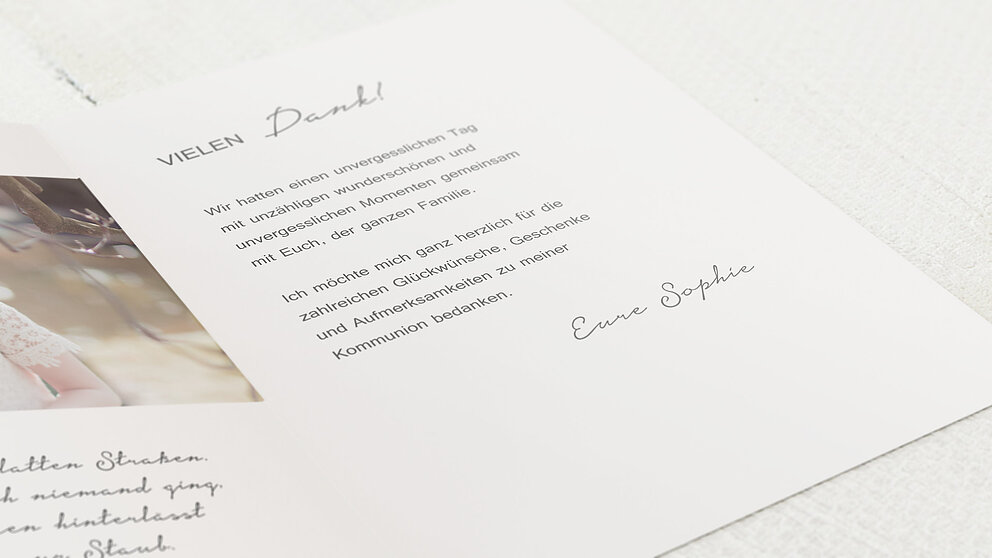 VIELEN Dank!
Wir hatten einen unvergesslichen Tag
mit unzähligen wunderschönen und
unvergesslichen Momenten gemeinsam
mit Euch, der ganzen Familie.
Ich möchte mich ganz herzlich für die
zahlreichen Glückwünsche, Geschenke
und Aufmerksamkeiten zu meiner
Kommunion bedanken.
Eure Sophie
Straßen.
niemand ging.
hinterlässt
Staub.